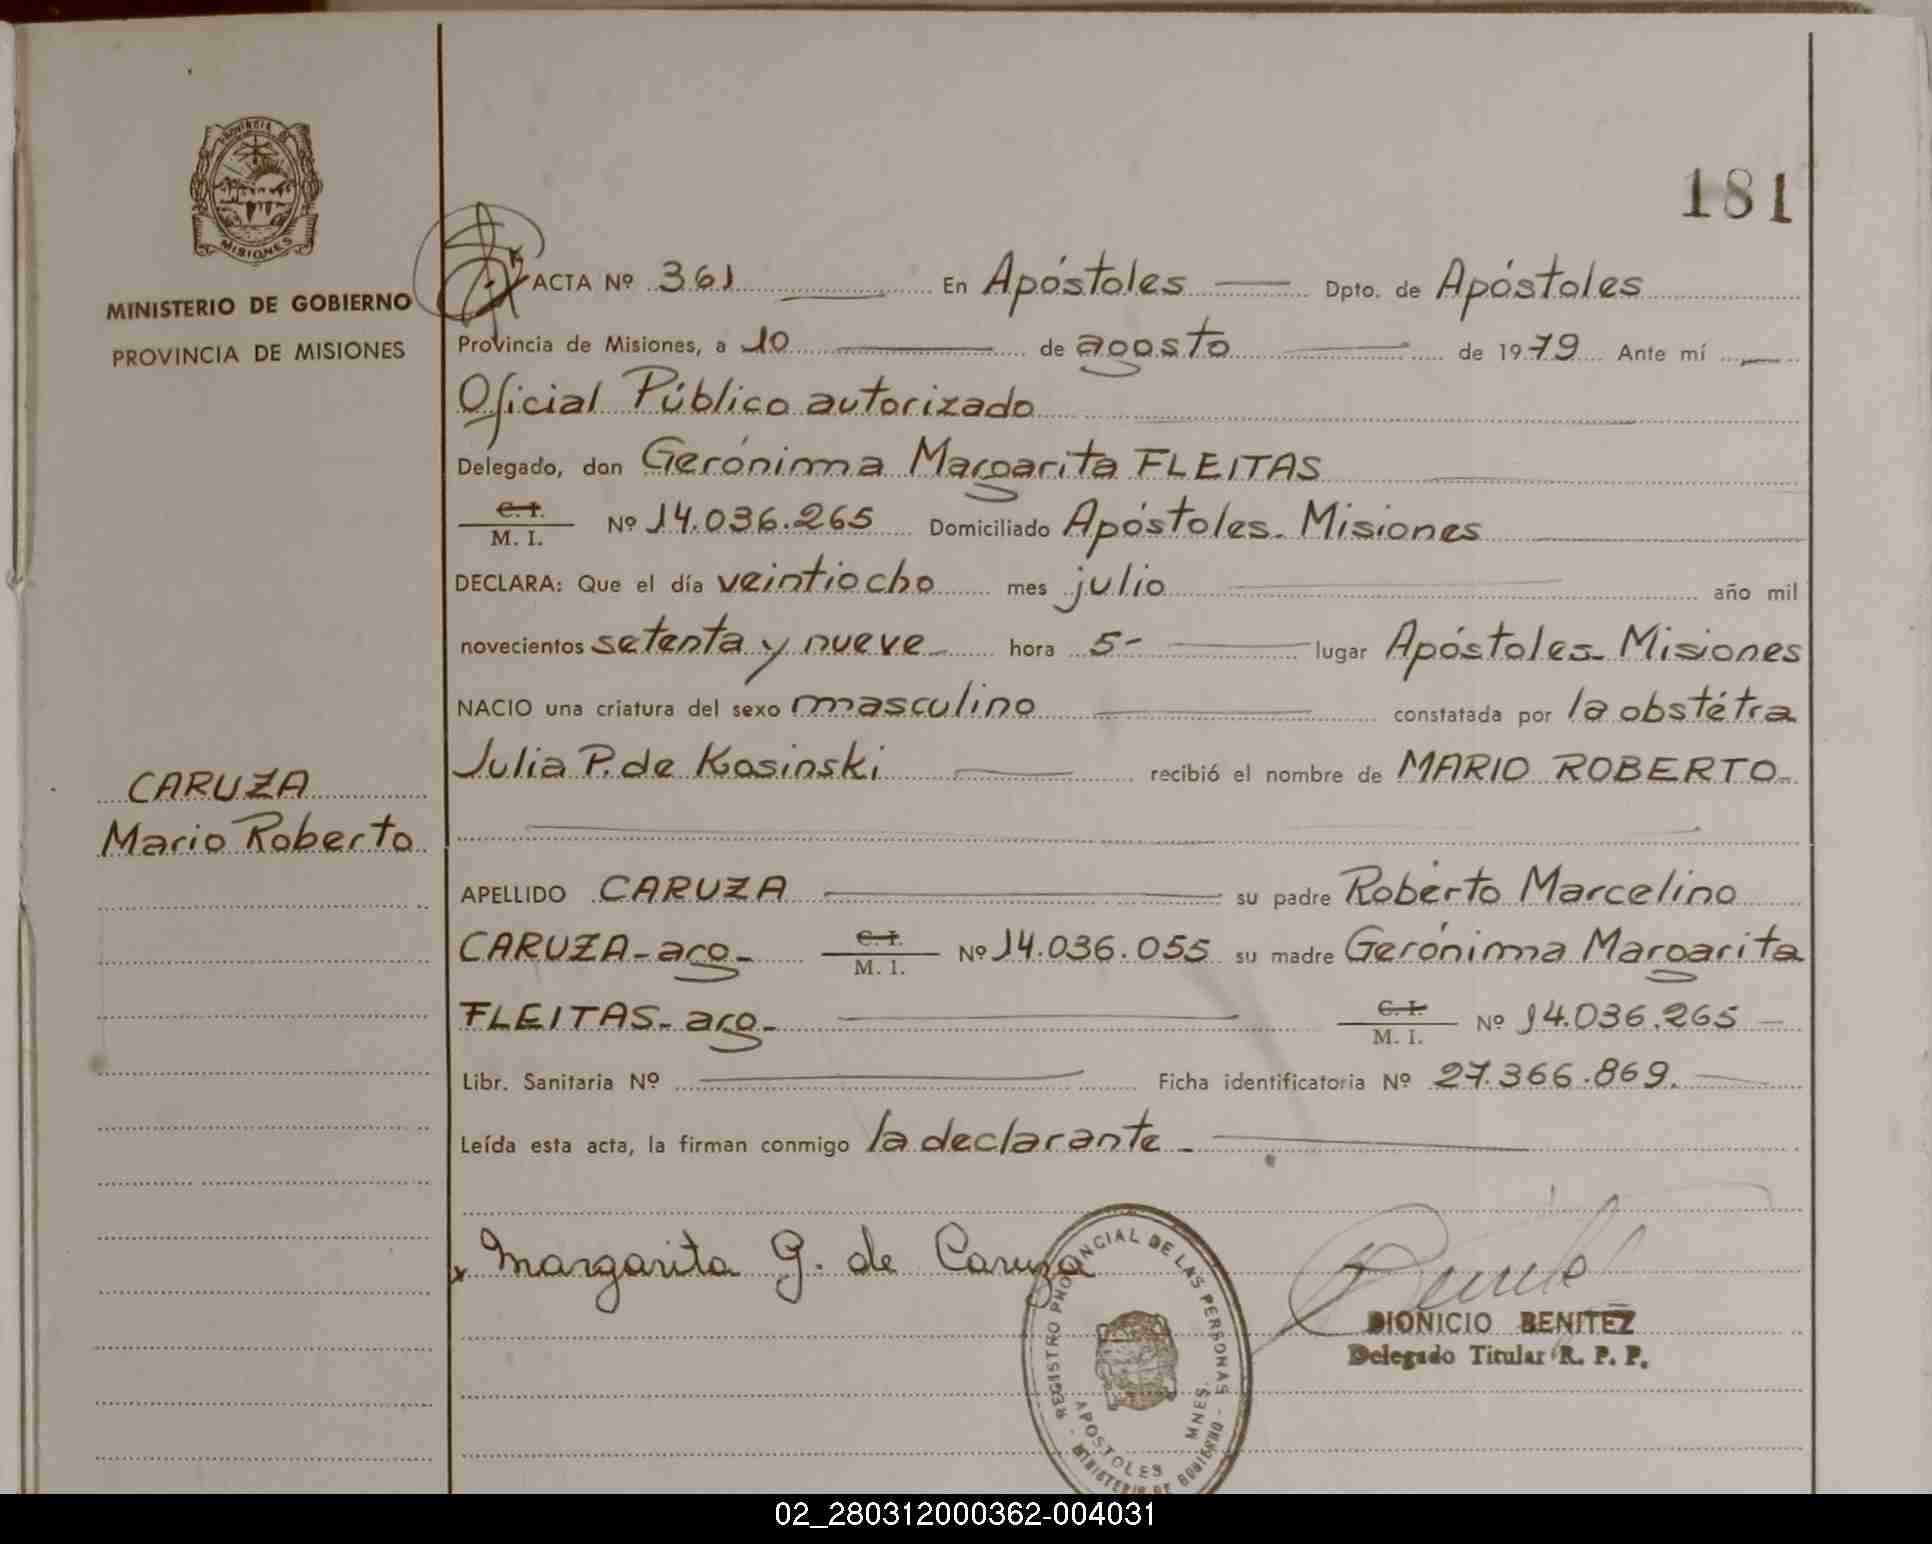 181
PROVINCIA DE
MISIONES
MINISTERIO DE GOBIERNO
PROVINCIA DE MISIONES
CARUZA
Mario Roberto
ACTA Nº 361 En Apóstoles Dpto. de Apóstoles
Provincia de Misiones, a 10 de agosto de 1979 Ante mí
Oficial Público autorizado
Delegado, don Gerónima Margarita FLEITAS
C. I.
M. I. Nº 14.036.265 Domiciliado Apóstoles. Misiones
DECLARA: Que el día veintiocho mes julio año mil
novecientos setenta y nueve hora 5- lugar Apóstoles. Misiones
NACIO una criatura del sexo masculino constatada por la obstétra
Julia P. de Kosinski recibió el nombre de MARIO ROBERTO
APELLIDO CARUZA su padre Roberto Marcelino
CARUZA-arg- C. I. M. I. Nº 14.036.055 su madre Gerónima Margarita
FLEITAS-arg- C. I. M. I. Nº 14.036.265
Libr. Sanitaria Nº Ficha identificatoria Nº 27.366.869.
Leída esta acta, la firman conmigo la declarante
x Margarita G. de Caruza
REGISTRO PROVINCIAL DE LAS PERSONAS
APOSTOLES MNES.
MINISTERIO DE GOBIERNO
DIONICIO BENITEZ
Delegado Titular R. P. P.
02_280312000362-004031